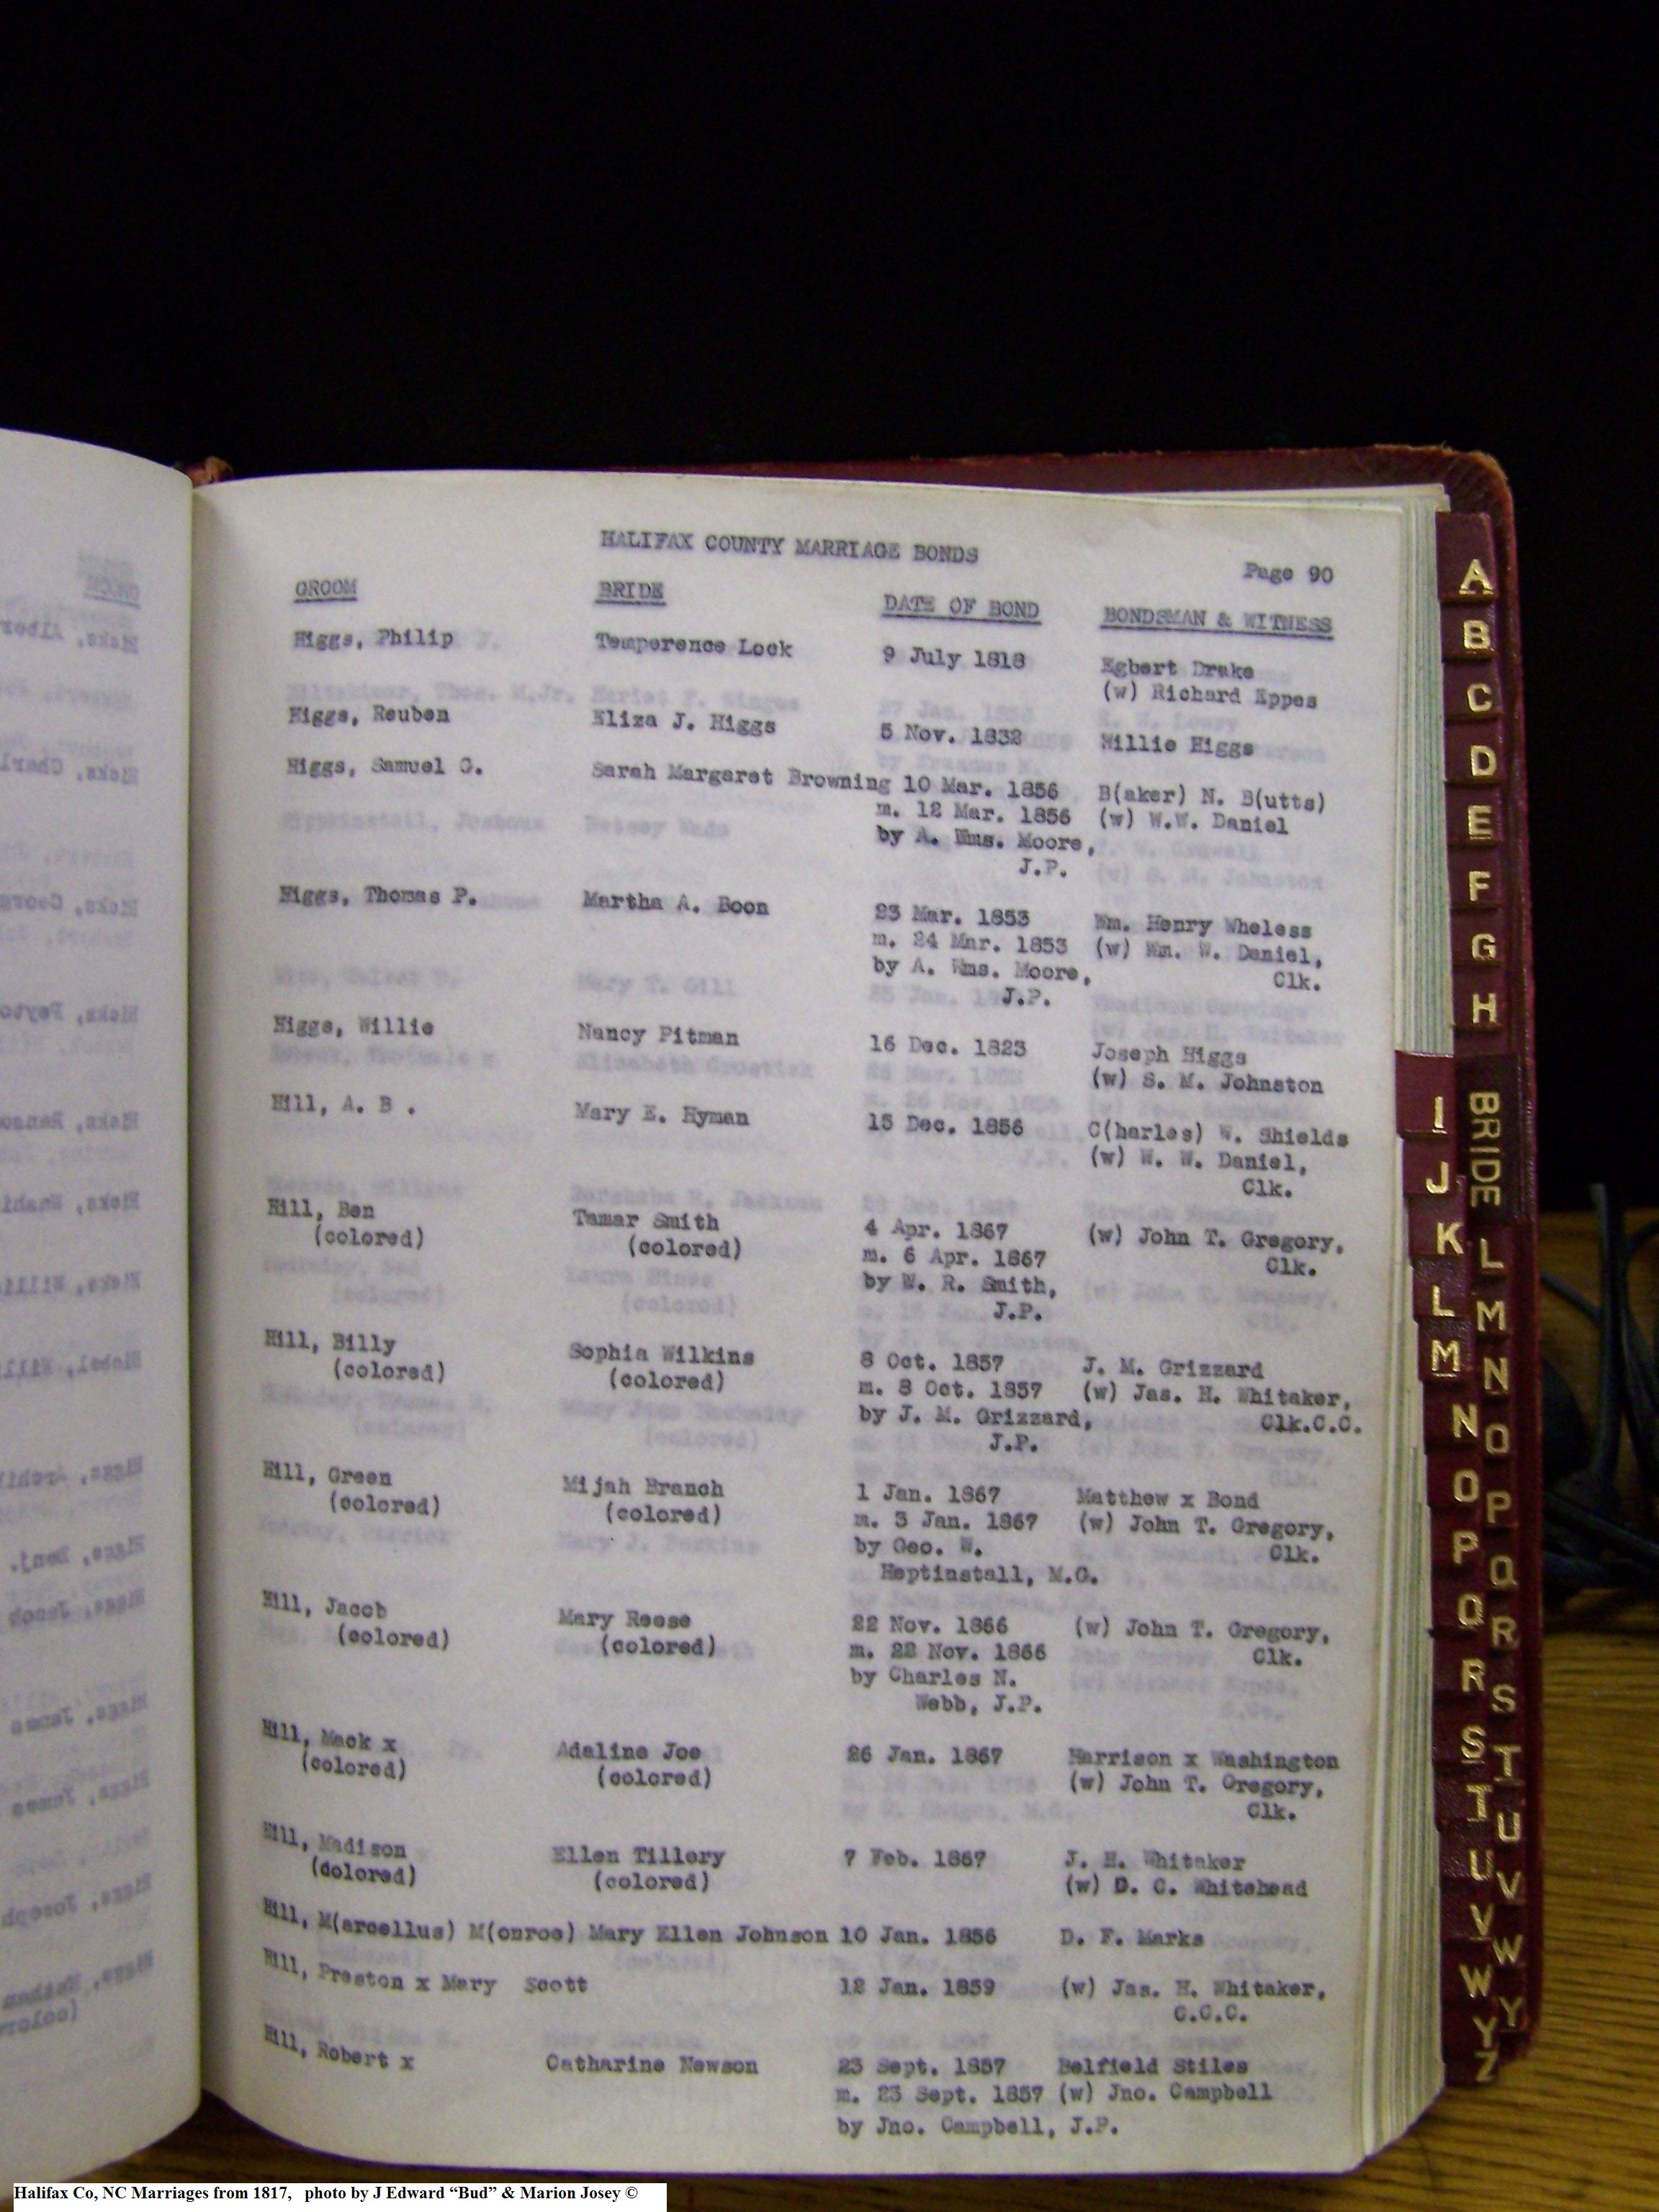 HALIFAX COUNTY MARRIAGE BONDS
Page 90
GROOM BRIDE DATE OF BOND BONDSMAN & WITNESS
Higgs, Philip Temperence Lock 9 July 1818 Egbert Drake
(w) Richard Eppes
Higgs, Reuben Eliza J. Higgs 5 Nov. 1832 Willie Higgs
Higgs, Samuel G. Sarah Margaret Browning 10 Mar. 1856 B(aker) N. B(utts)
m. 12 Mar. 1856 (w) W.W. Daniel
by A. Wms. Moore,
J.P.
Higgs, Thomas P. Martha A. Boon 23 Mar. 1853 Wm. Henry Wheless
m. 24 Mar. 1853 (w) Wm. W. Daniel,
by A. Wms. Moore, Clk.
J.P.
Higgs, Willie Nancy Pitman 16 Dec. 1823 Joseph Higgs
(w) S. M. Johnston
Hill, A. B . Mary E. Hyman 15 Dec. 1856 C(harles) W. Shields
(w) W. W. Daniel,
Clk.
Hill, Ben Tamar Smith 4 Apr. 1867 (w) John T. Gregory,
(colored) (colored) m. 6 Apr. 1867 Clk.
by W. R. Smith,
J.P.
Hill, Billy Sophia Wilkins 8 Oct. 1857 J. M. Grizzard
(colored) (colored) m. 8 Oct. 1857 (w) Jas. H. Whitaker,
by J. M. Grizzard, Clk.C.C.
J.P.
Hill, Green Mijah Branch 1 Jan. 1867 Matthew x Bond
(colored) (colored) m. 3 Jan. 1867 (w) John T. Gregory,
by Geo. W. Clk.
Heptinstall, M.G.
Hill, Jacob Mary Reese 22 Nov. 1866 (w) John T. Gregory,
(colored) (colored) m. 22 Nov. 1866 Clk.
by Charles N.
Webb, J.P.
Hill, Mack x Adaline Joe 26 Jan. 1867 Harrison x Washington
(colored) (colored) (w) John T. Gregory,
Clk.
Hill, Madison Ellen Tillery 7 Feb. 1867 J. H. Whitaker
(dolored) (colored) (w) D. C. Whitehead
Hill, M(arcellus) M(onroe) Mary Ellen Johnson 10 Jan. 1856 D. F. Marks
Hill, Preston x Mary Scott 12 Jan. 1859 (w) Jas. H. Whitaker,
C.C.C.
Hill, Robert x Catharine Newson 23 Sept. 1857 Belfield Stiles
m. 23 Sept. 1857 (w) Jno. Campbell
by Jno. Campbell, J.P.
A
B
C
D
E
F
G
H
I
J
K
L
M
N
O
P
Q
R
S
T
U
V
W
Y
Z
BRIDE
L
M
N
O
P
Q
R
S
T
U
V
W
Y
Halifax Co, NC Marriages from 1817, photo by J Edward “Bud” & Marion Josey ©